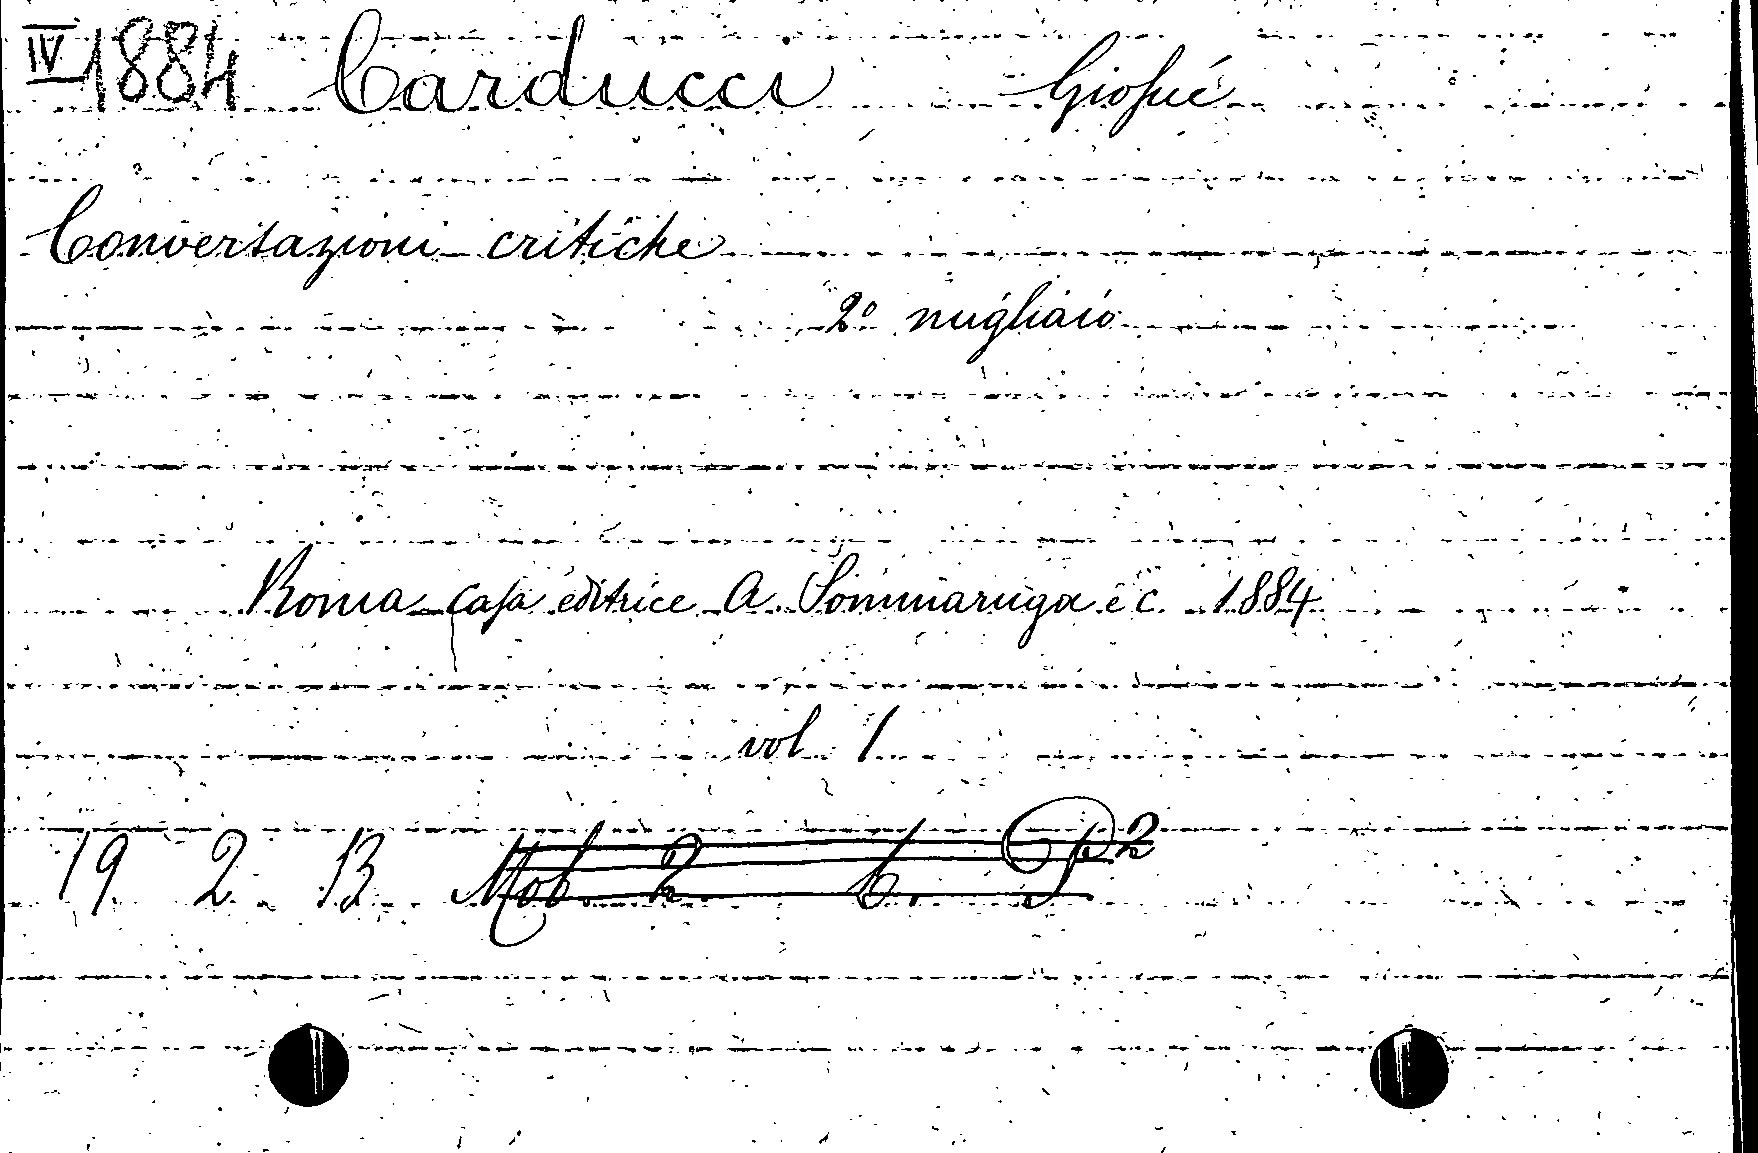 IV 1884 Carducci Giosué
Conversazioni critiche
2º migliaio
Roma casa editrice A. Sommaruga e C. 1884
vol 1
19 2 B Mob 2 6. P 2